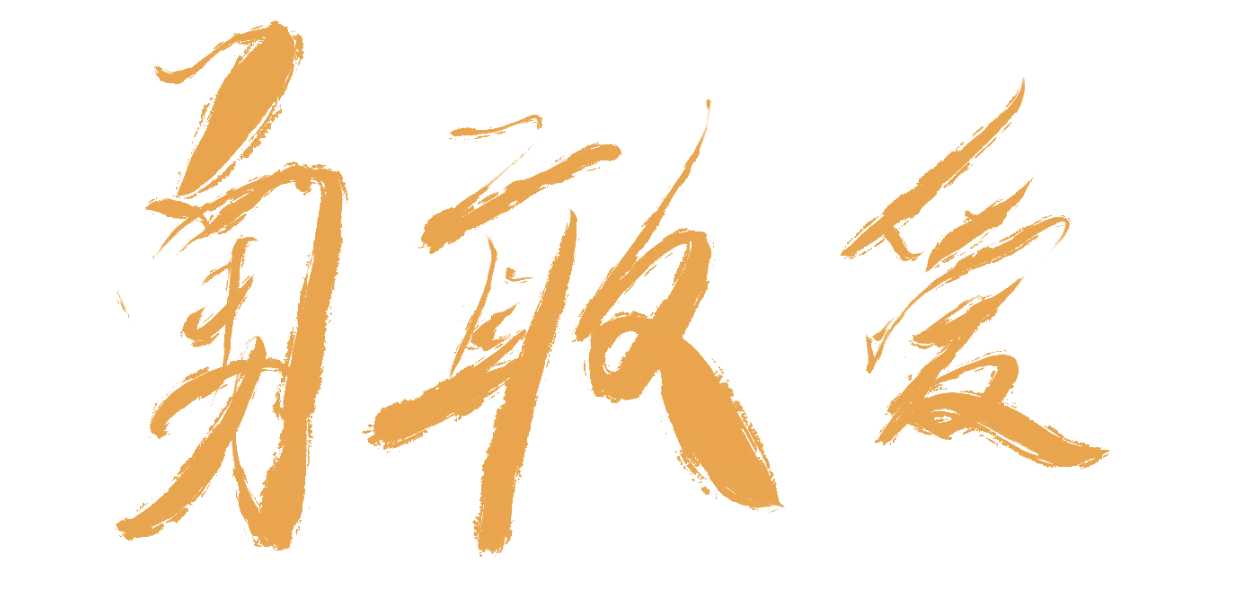 勇敢爱